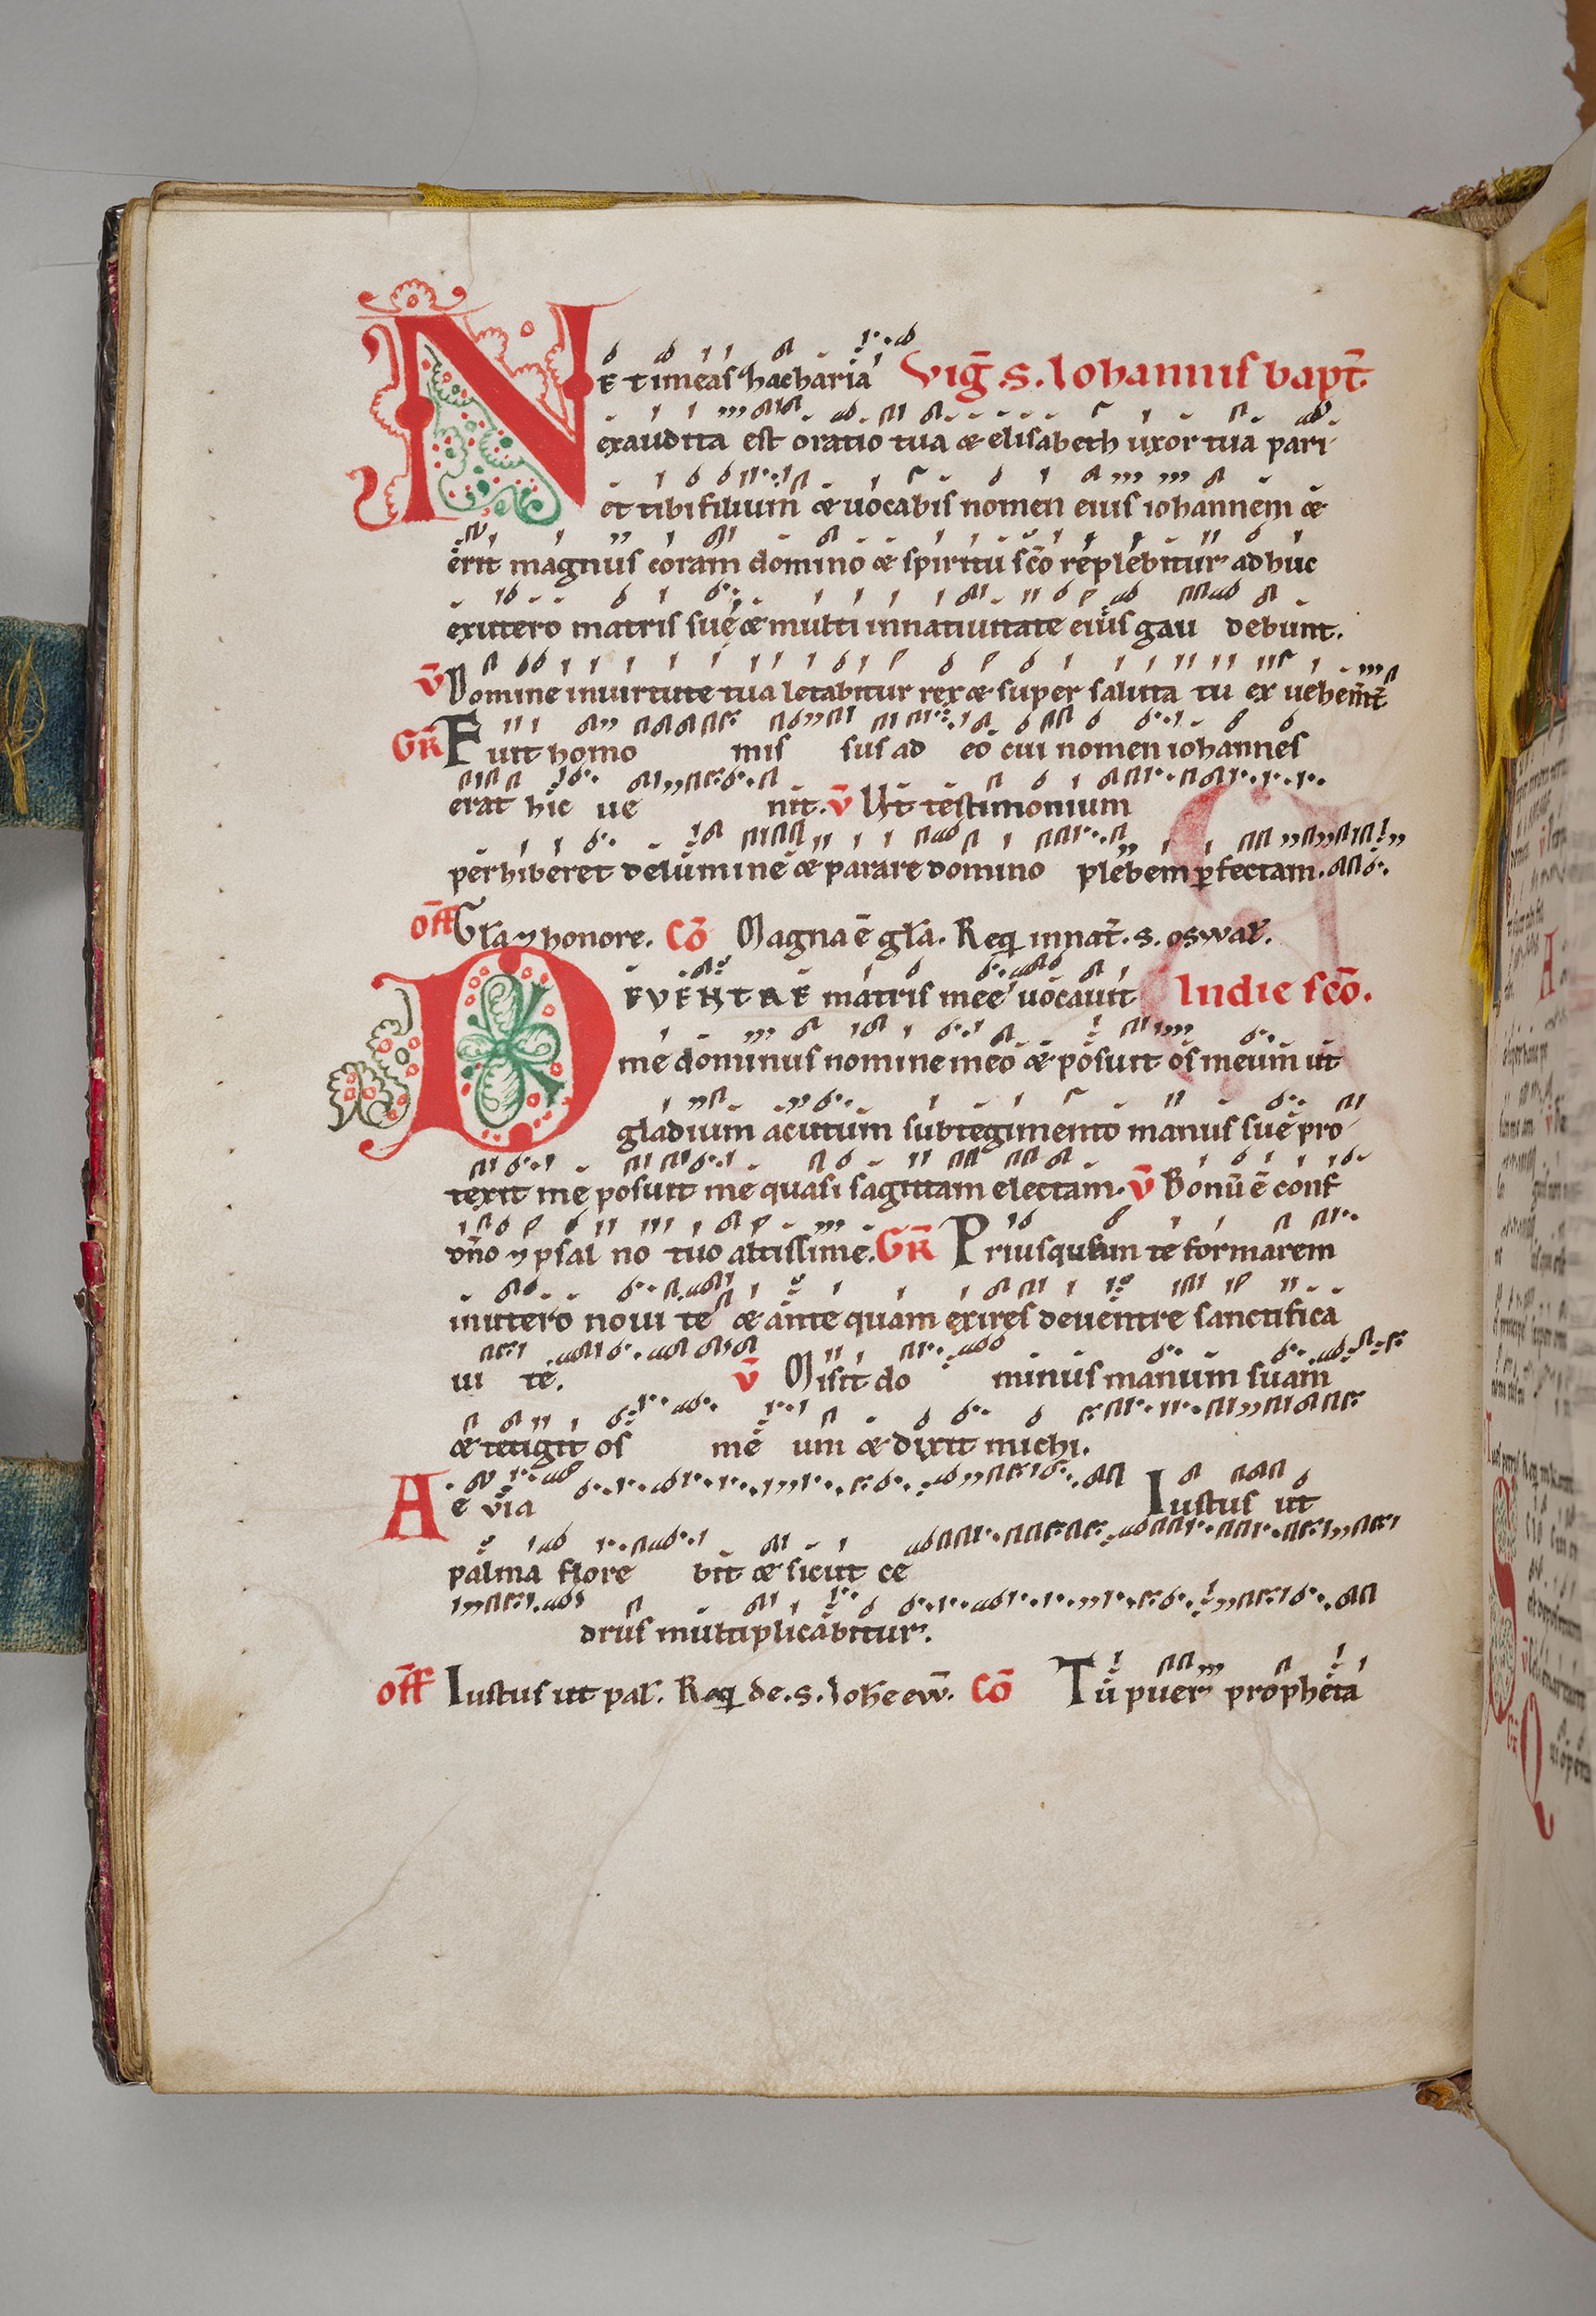 NE timeas hacharia Vig̅ .s. Iohannis bapt̅.
exaudita est oratio tua æ elisabeth uxor tua pari
et tibi filium æ uocabis nomen eius iohannem æ
erit magnus coram domino æ spiritu sc̅o replebitur adhuc
ex utero matris sue æ multi in natiuitate eius gau debunt.
V̅ Domine in uirtute tua letabitur rex æ super saluta tu ex uehem̅t̅
GR̅ Fuit homo mis sus ad eo cui nomen iohannes
erat hic ue nit. V̅ Ut testimonium
perhiberet de lumine æ parare domino plebem p̲fectam.
Off̅ Gl̅a ⁊ honore. Co̅ Magna e̅ gl̅a. Req̲ in nat̅. s. oswal̅.
DE VENTRE matris mee uocauit In die sc̅o.
me dominus nomine meo æ posuit os meum ut
gladium acutum sub tegimento manus sue pro
texit me posuit me quasi sagittam electam. V̅ Bonu̅ e̅ conf
dn̅o ⁊ psal no tuo altissime. GR̅ Priusquam te formarem
in utero noui te æ ante quam exires de uentre sanctifica
ui te. V̅ Misit do minus manum suam
æ tetigit os me um æ dixit michi.
Ae via Iustus ut
palma flore bit æ sicut ce
drus multiplicabitur.
Off̅ Iustus ut pal̅. Req̲ de .s. Ioh̅e ew̅. Co̅ Tu puer propheta